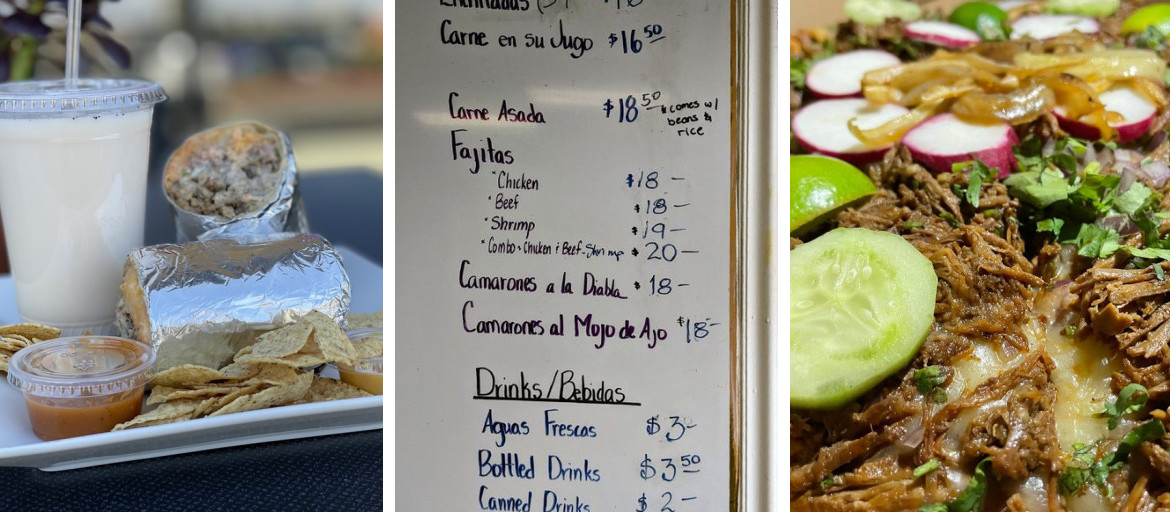 Carne en su Jugo $16 50
Carne Asada $18 50 * comes w/
beans &
rice
Fajitas
· Chicken $18 —
· Beef $18 —
· Shrimp $19 —
· Combo · Chicken & Beef-Shrimp $20 —
Camarones a la Diabla $18 —
Camarones al Mojo de Ajo $18 —
Drinks/Bebidas
Aguas Frescas $3 —
Bottled Drinks $3 50
Canned Drinks $2 —